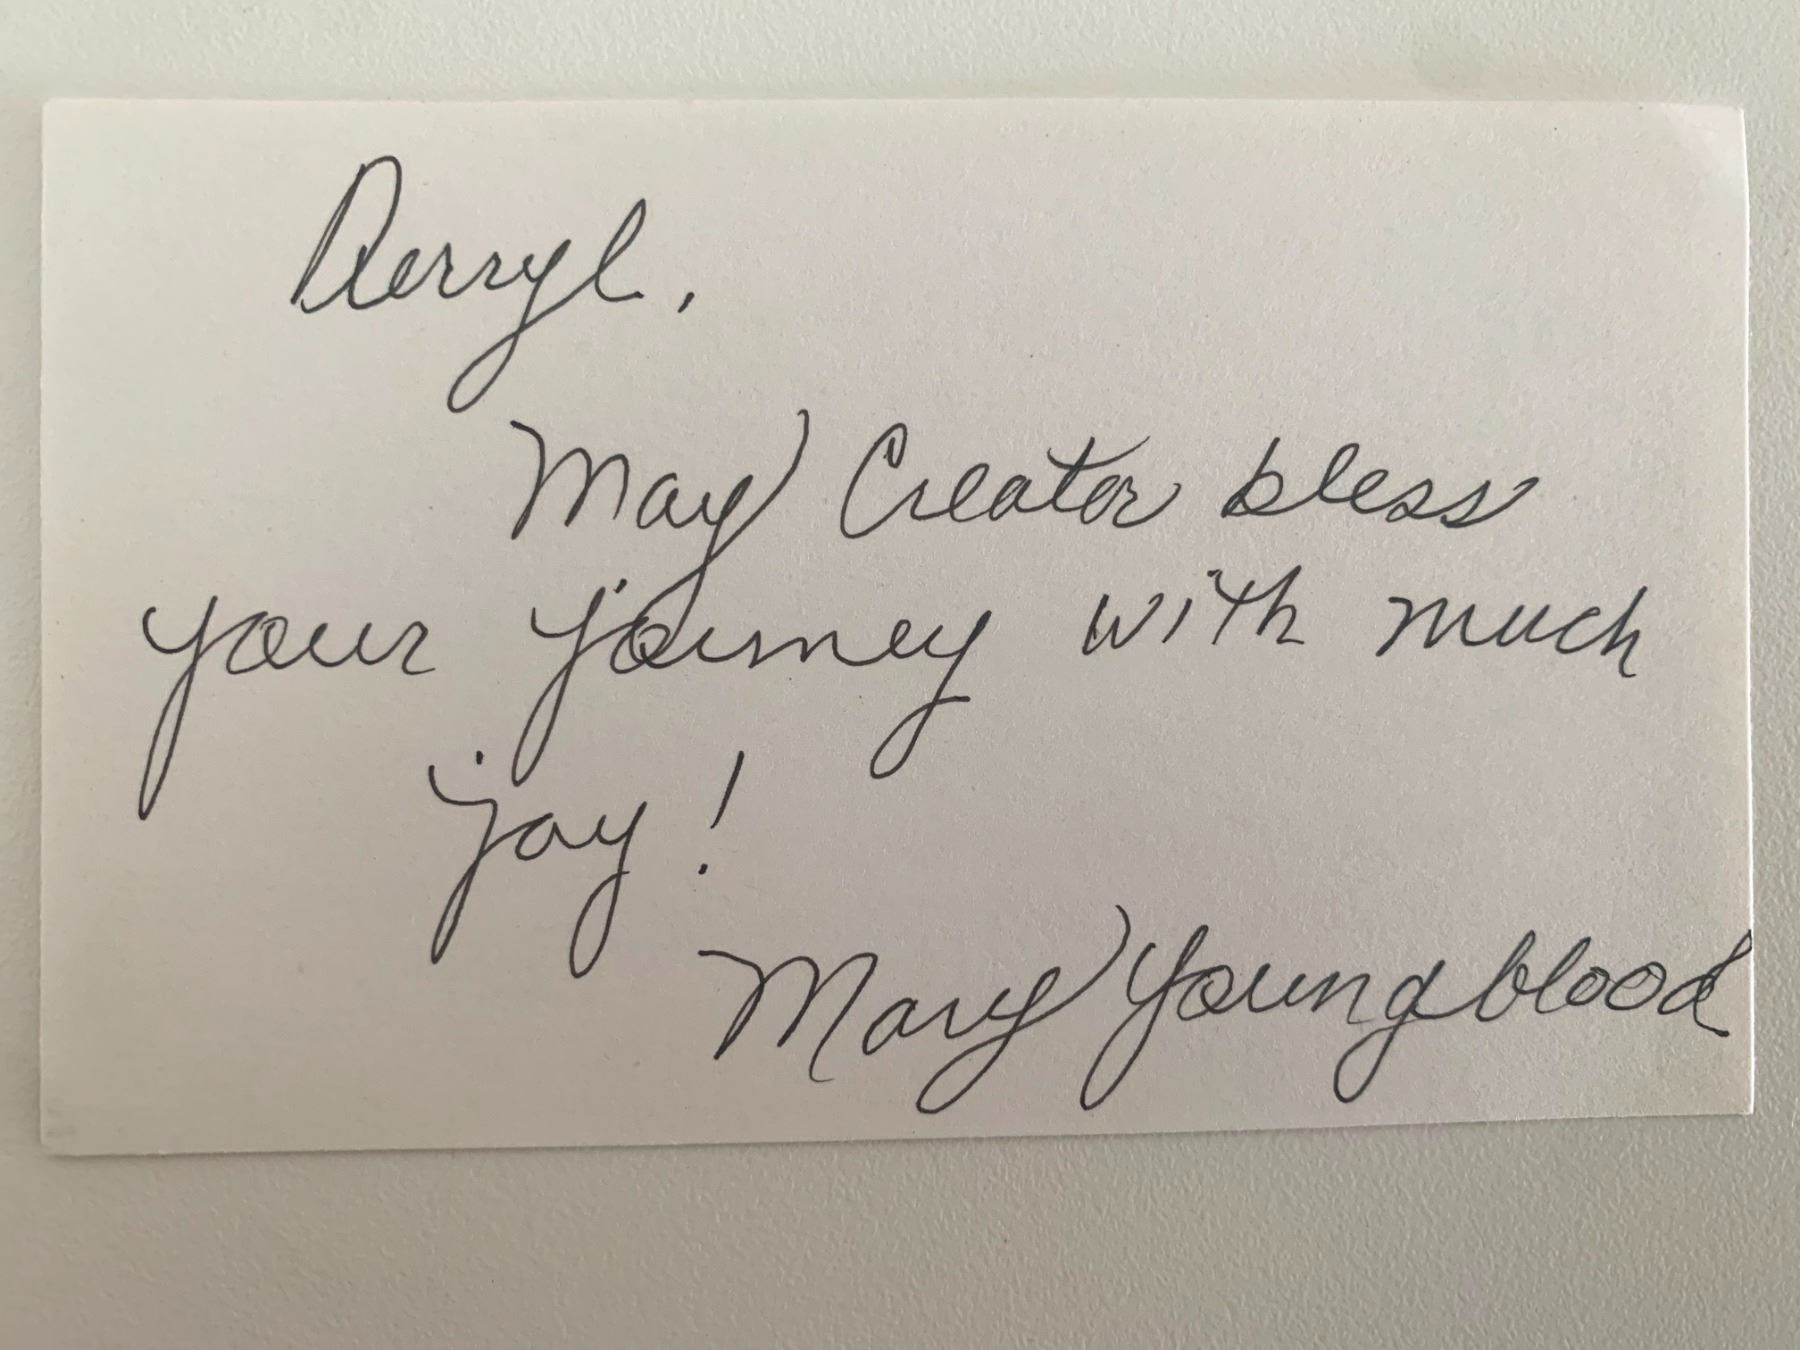 Derryl,
May Creator bless
your journey with much
joy!
Mary Youngblood